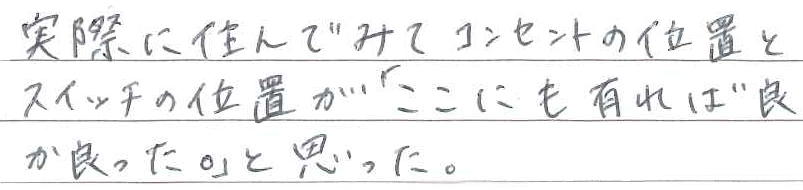 実際に住んでみてコンセントの位置と
スイッチの位置が「ここにも有れば良
か良った。」と思った。